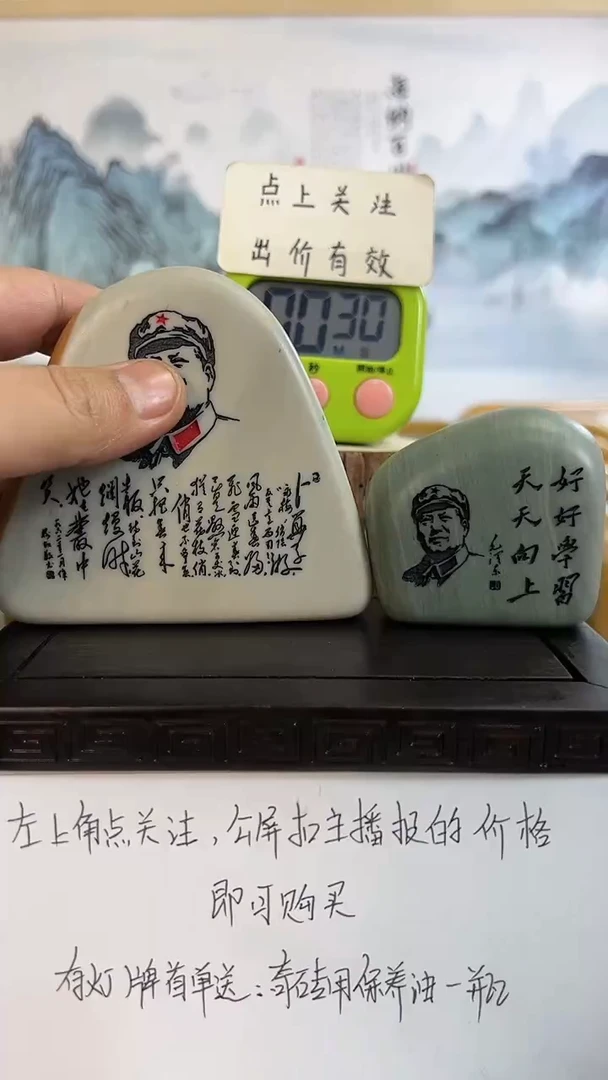 点上关注
出价有效
00 30
M S
秒
開始/停止
风雨送春归
飞雪迎春到
已是悬崖百丈冰
犹有花枝俏
俏也不争春
只把春来
报 待到山花
烂熳时
她在丛中
笑
好好學習
天天向上
毛泽东
左上角点关注，公屏扣主播报的价格
即可购买
有灯牌首单送：奇石专用保养油一瓶